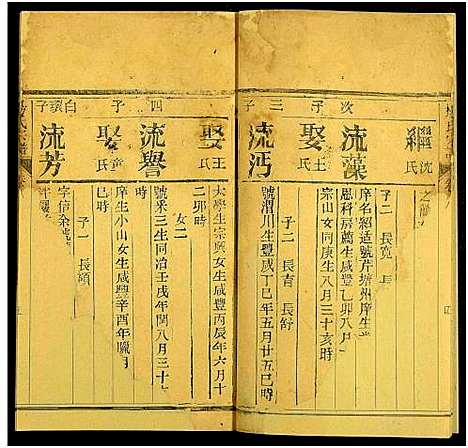 繼沈氏
子二 長寬
次子
流藻
庠名紹适號芹塘州庠生
恩科房薦生咸豐乙卯八月
娶王氏
宗山女同庚生八月三十亥時
子二 長青 長舒
三子
流沔
號渭川生豐咸丁巳年五月廿五巳時
娶王氏
太學生宗
女生咸豐丙辰年六月十
二卯時
女二
四子
流譽
號采三生同治壬戌年閏八月三十
時
娶
氏
庠生小山女生咸豐辛酉年臘月
巳時
子一 長頌
白襄子
流芳
字信余